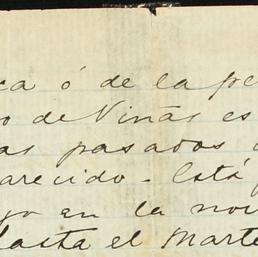 ca ó de la pe
o de Viñas es
as pasados
arecido - Está
go en la no
Hasta el Marte